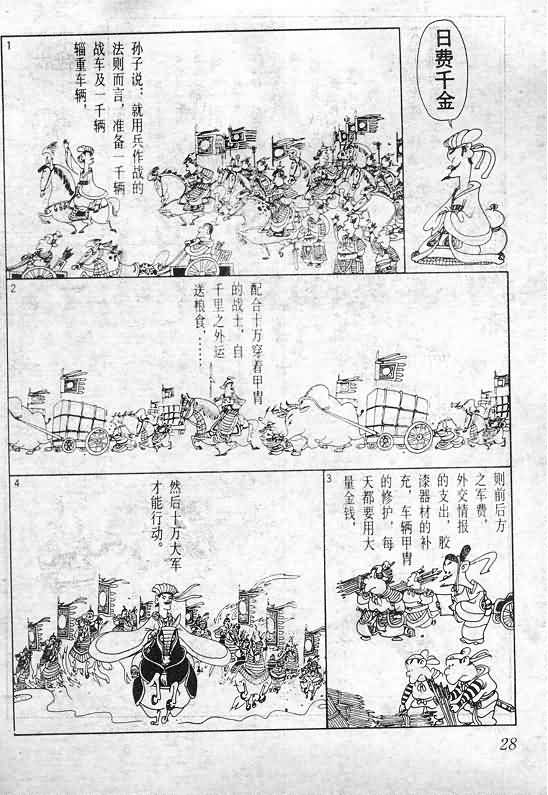 日费千金
1
孙子说：就用兵作战的
法则而言，准备一千辆
战车及一千辆
辎重车辆，
2
配合十万穿着甲胄
的战士，自
千里之外运
送粮食，……
3
则前后方
之军费，
外交情报
的支出，胶
漆器材的补
充，车辆甲胄
的修护，每
天都要用大
量金钱，
4
然后十万大军
才能行动。
28